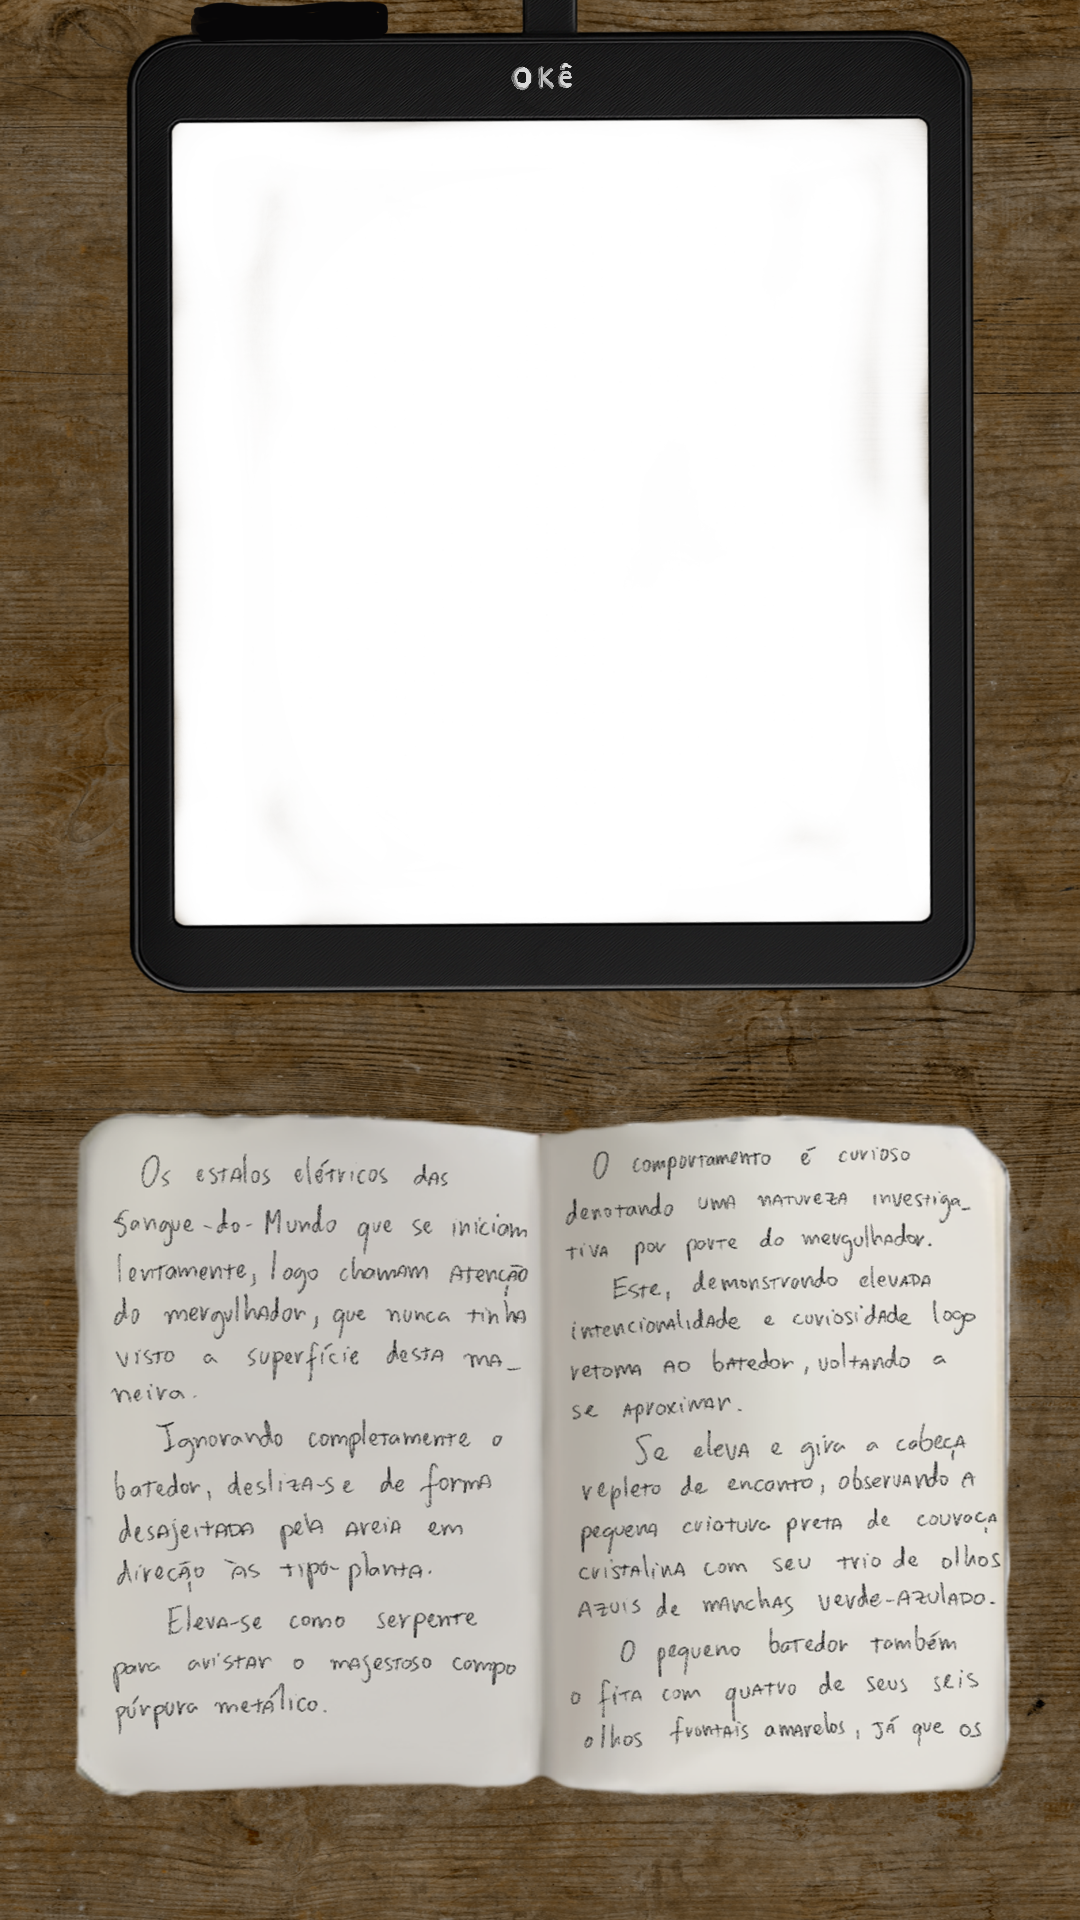 OKê
Os estalos elétricos das
Sangue-do-Mundo que se iniciam
lentamente, logo chamam atenção
do mergulhador, que nunca tinha
visto a superfície desta ma_
neira.
Ignorando completamente o
batedor, desliza-se de forma
desajeitada pela areia em
direção às tipo-planta.
Eleva-se como serpente
para avistar o majestoso campo
púrpura metálico.
O comportamento é curioso
denotando uma natureza investiga_
tiva por parte do mergulhador.
Este, demonstrando elevada
intencionalidade e curiosidade logo
retoma ao batedor, voltando a
se aproximar.
Se eleva e gira a cabeça
repleto de encanto, observando a
pequena criatura preta de couraça
cristalina com seu trio de olhos
azuis de manchas verde-azulado.
O pequeno batedor também
o fita com quatro de seus seis
olhos frontais amarelos, já que os